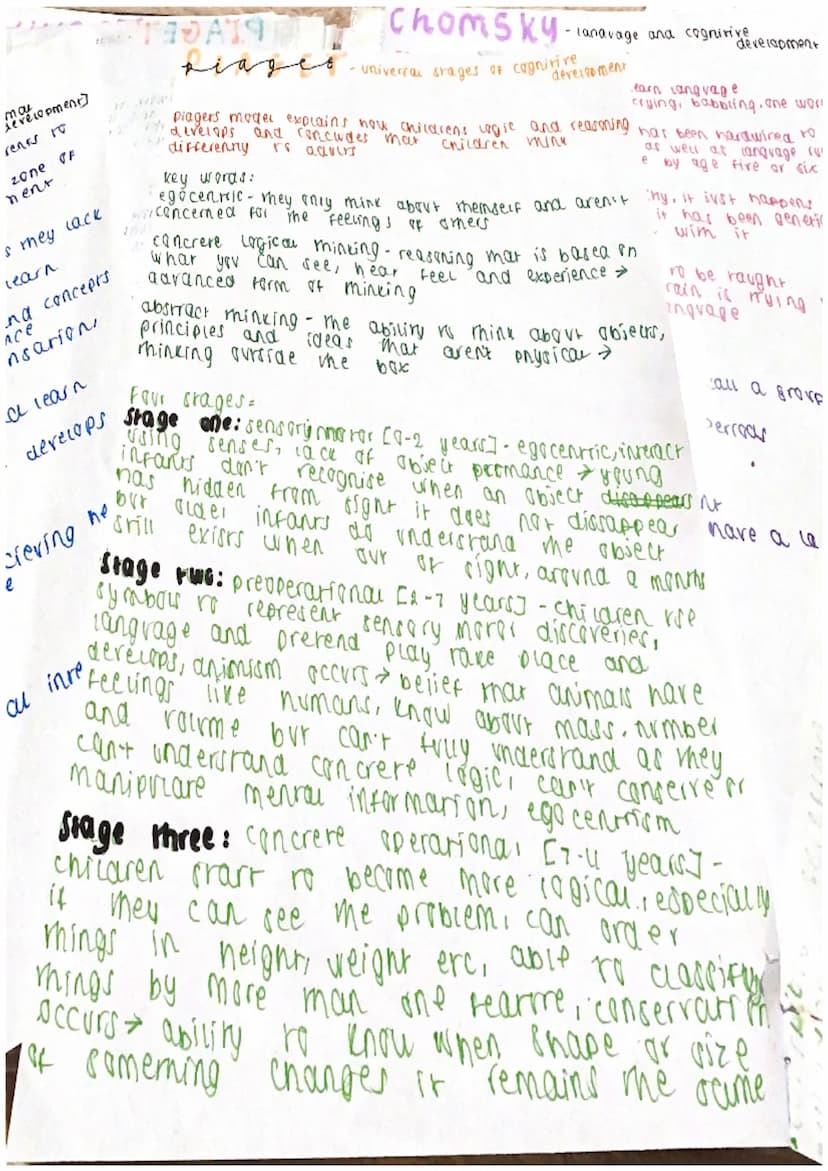 PIAGET
Chomsky - language and cognitive
development
piaget - universal stages of cognitive
development
Piagets model explains how childrens logic and reasoning
develops and concludes that children think
differently to adults
key words:
egocentric - they only think about themself and aren't
concerned for the feelings of others
concrete logical thinking - reasoning that is based on
what you can see, hear feel and experience →
advanced form of thinking
abstract thinking - the ability to think about objects,
principles and ideas that aren't physical →
thinking outside the box
Four stages:
Stage one: sensorymotor [0-2 years] - egocentric, interact
using senses, lack of object permance → young
infants don't recognise when an object disappears
has hidden from sight it does not dissappear
but older infants do understand the object
still exists when out of sight, around 8 months
Stage two: preoperational [2-7 years] - children use
symbols to represent sensory motor discoveries,
language and pretend play take place and
develops, animism occurs → belief that animals have
feelings like humans, know about mass, number
and volume but can't fully understand as they
can't understand concrete logic, can't conserve or
manipulate mental information, egocentrism
Stage three: concrete operational [7-11 years] -
children start to become more logical, especially
if they can see the problem, can order
things in height, weight etc, able to classify
things by more than one feature, conservation
occurs → ability to know when shape or size
of something changes it remains the same
development]
zone of
s they lack
learn
nd concepts
learn
develops
ieving
learn language
crying, babbling, one wor
has been hardwired to
as well as language
e by age five or six
hy, it just happens
it has been geneti
with it
to be taught
rain is trying
anguage
call a group
have a la